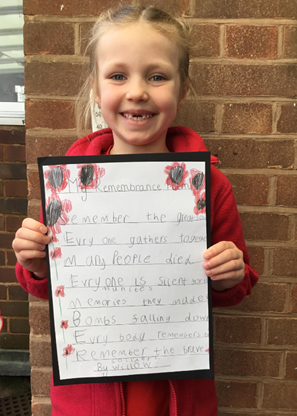 My Remembrance
Remember the great
Evry one gathers
Many People died
Evryone is silent
Memories they made
Bombs falling down
Evry body remembers
Remember the brave
By Willow